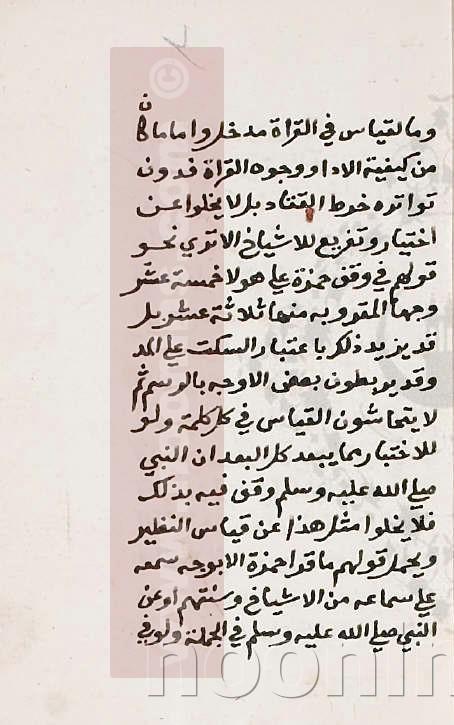 وما لقياس في القراة مدخل واما ما كان
من كيفية الادا ووجوه القراة فدون
تواتره خرط القتاد بل لا يخلوا عن
اختيار وتفريع للاشياخ الا تري نحو
قولهم في وقف حمزة علي هولا خمسة عشر
وجها المقرو به منها ثلاثة عشر بل
قد يزيد ذلك باعتبار السكت علي المد
وقد يربطون بعض الاوجه بالرسم ثم
لا يتحاشون القياس في كل كلمة ولو
للاختبار مما يبعد كل البعد ان النبي
صلي الله عليه وسلم وقف فيه بذلك
فلا يخلوا مثل هذا عن قياس النظير
ويحمل قولهم ما قرا حمزة الا بوجه سمعه
علي سماعه من الاشياخ وسنتهم او عن
النبي صلي الله عليه وسلم في الجملة ولو في
noonin